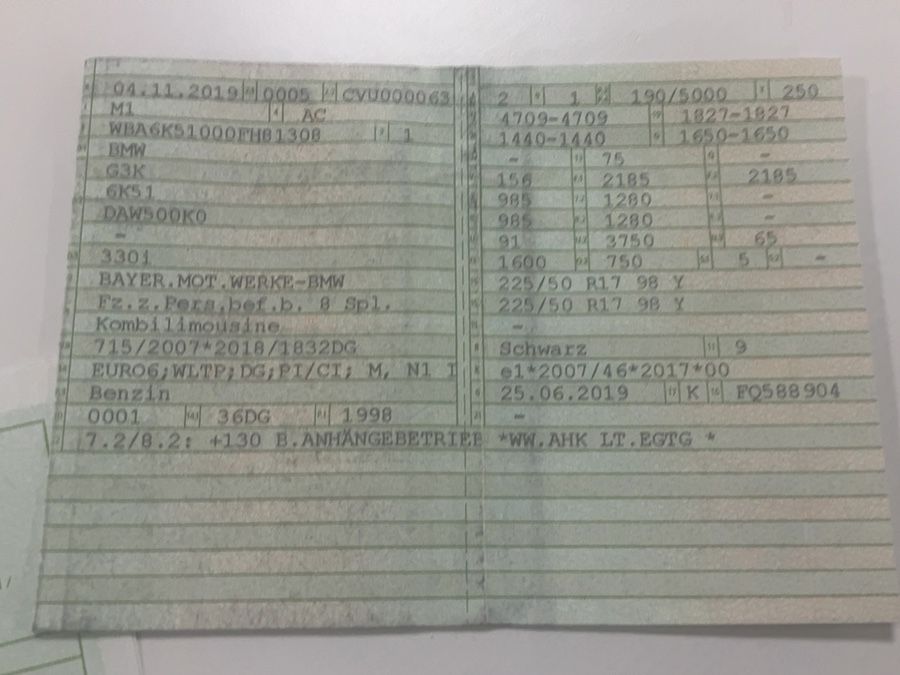 04.11.2019 0005 CVU000063
M1 AC
WBA6K51000FH81308 1
BMW
G3K
6K51
DAW500K0
-
330i
BAYER.MOT.WERKE-BMW
Fz.z.Pers.bef.b. 8 Spl.
Kombilimousine
715/2007*2018/1832DG
EURO6;WLTP;DG;PI/CI; M, N1 I
Benzin
0001 36DG 1998
7.2/8.2: +130 B.ANHÄNGEBETRIEB
2 1 190/5000 250
4709-4709 1827-1827
1440-1440 1650-1650
- 75 -
156 2185 2185
985 1280 -
985 1280 -
91 3750 65
1600 750 5 -
225/50 R17 98 Y
225/50 R17 98 Y
-
Schwarz 9
e1*2007/46*2017*00
25.06.2019 K FQ588904
-
*WW.AHK LT.EGTG *